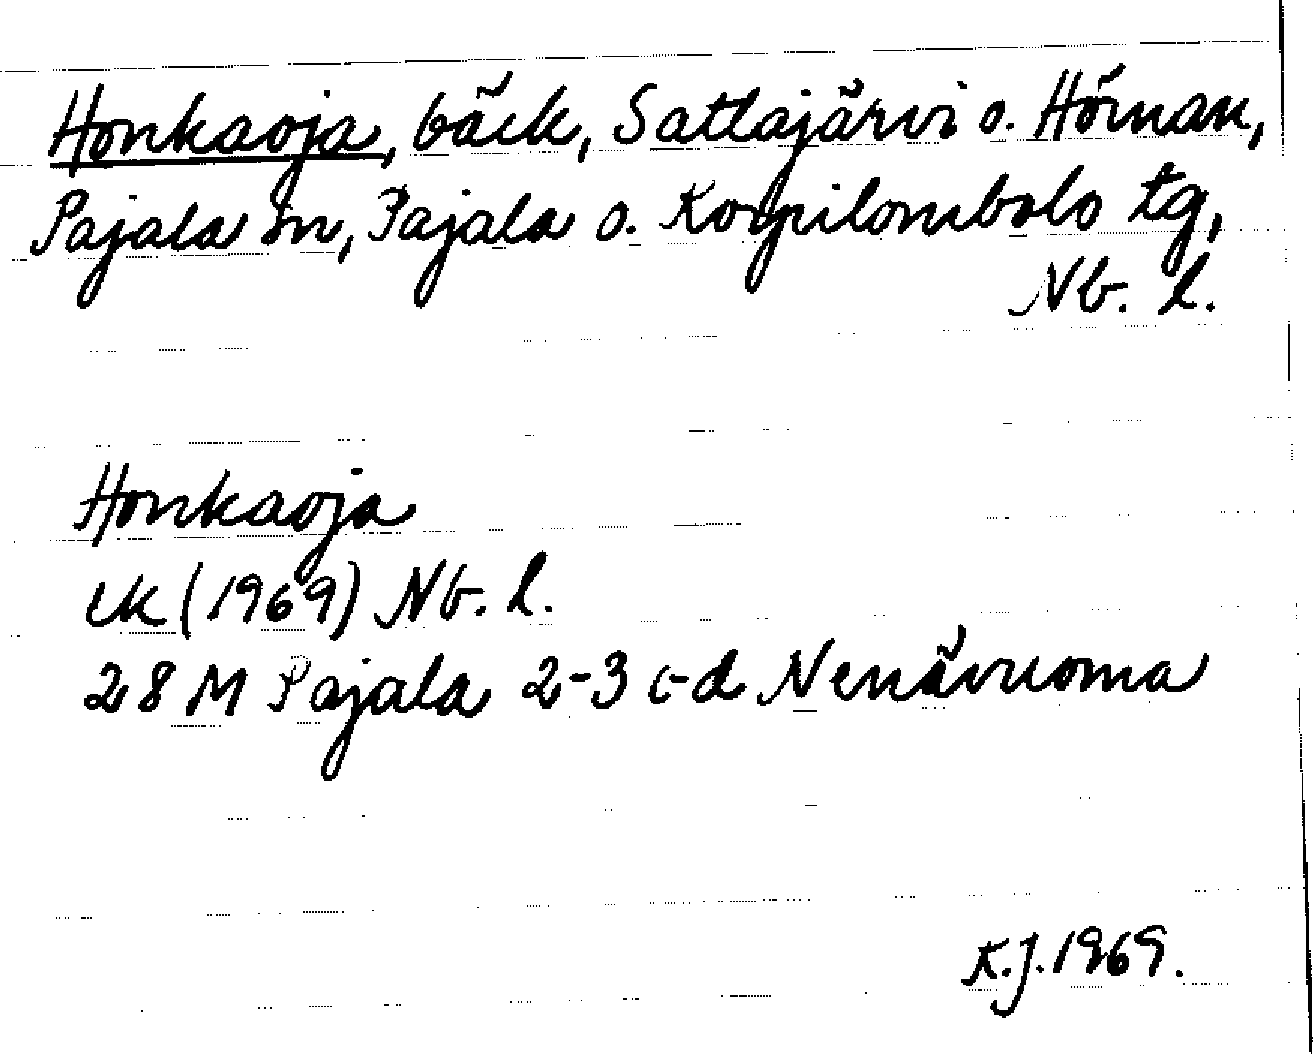 Honkaoja, bäck, Sattajärvi o. Hörnan,
Pajala sn, Pajala o. Korpilombolo tg,
Nb. l.
Honkaoja
ek (1969) Nb. l.
28 M Pajala 2-3 c-d Nenävuoma
K.J. 1969.